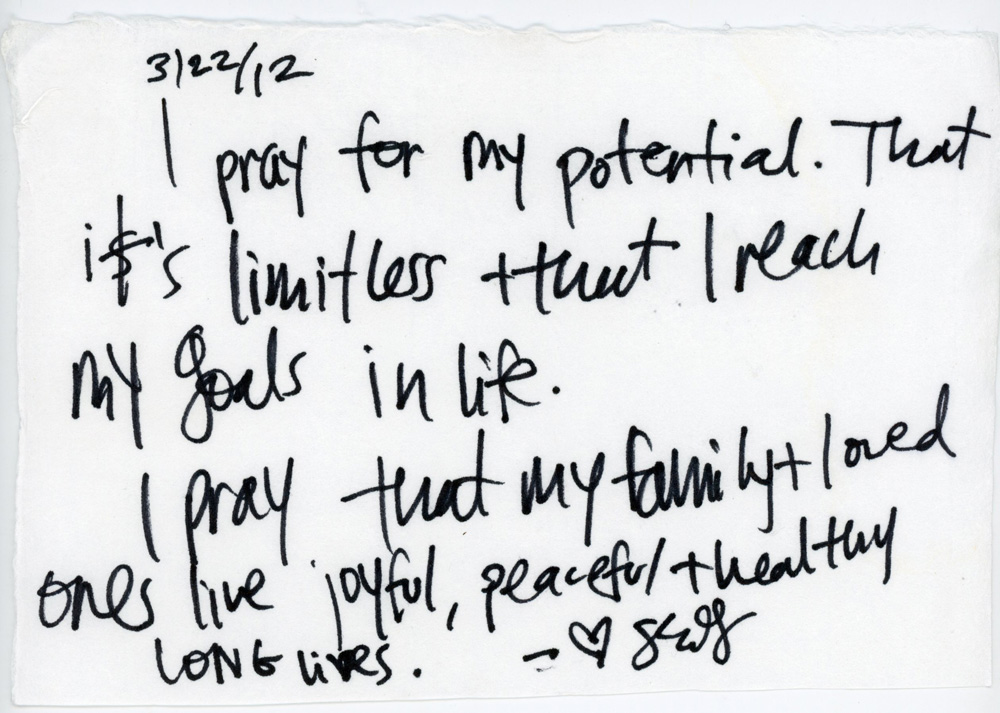 3/22/12
I pray for my potential. That
it's limitless + that I reach
my goals in life.
I pray that my family + loved
ones live joyful, peaceful + healthy
LONG lives. – ♡